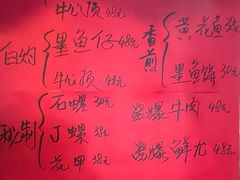 牛心顶 48元
白灼 墨鱼仔 48元
牛心顶 48元
香煎 黄花鱼
墨鱼饼 34元
秘制 石螺 34元
丁螺 38元
花甲 38元
牛肉 48元
鲜尤 48元